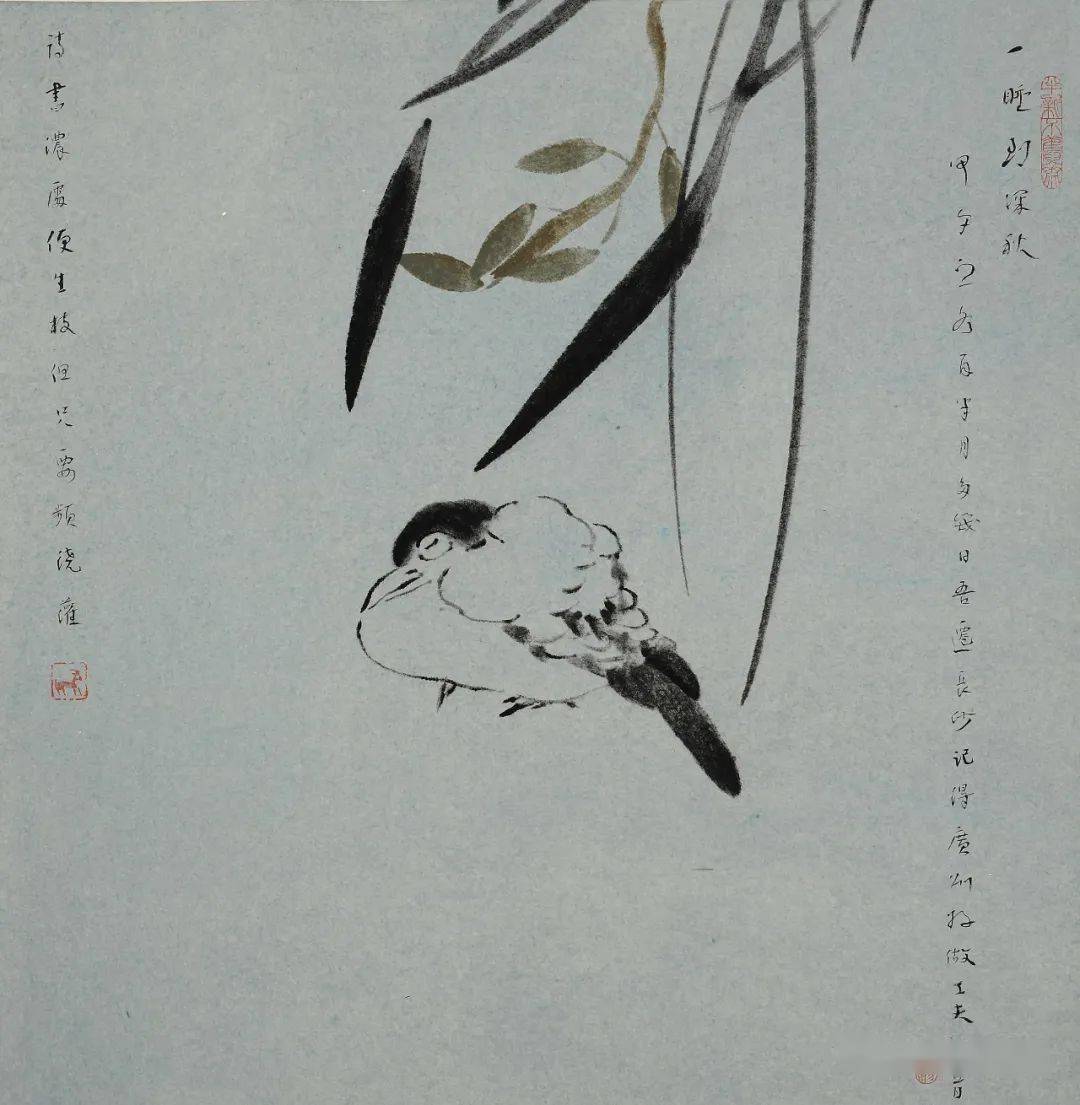 一睡到深秋
甲午立冬有半月多幾日吾還長沙記得廣州好做工夫
詩書濃處便生枝但只要頻澆灌